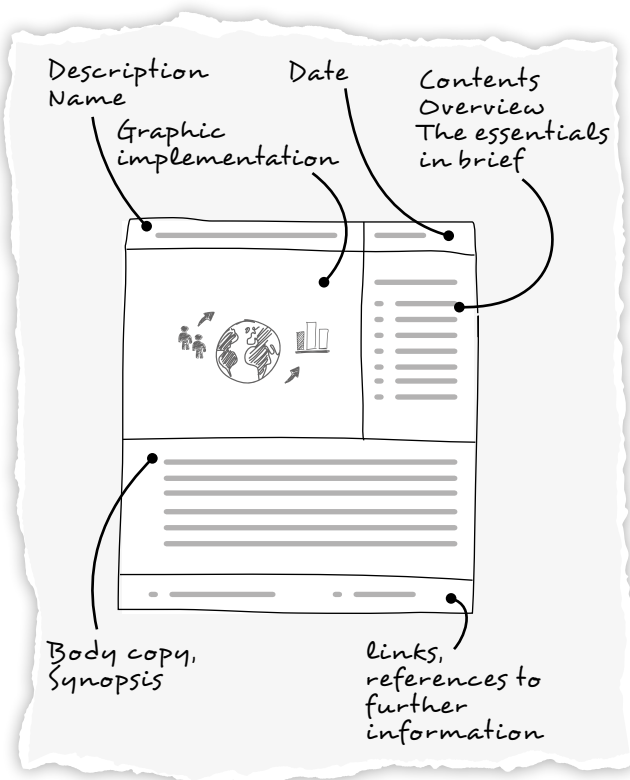 Description
Name
Graphic
implementation
Date
Contents
Overview
The essentials
in brief
Body copy,
Synopsis
links,
references to
further
information